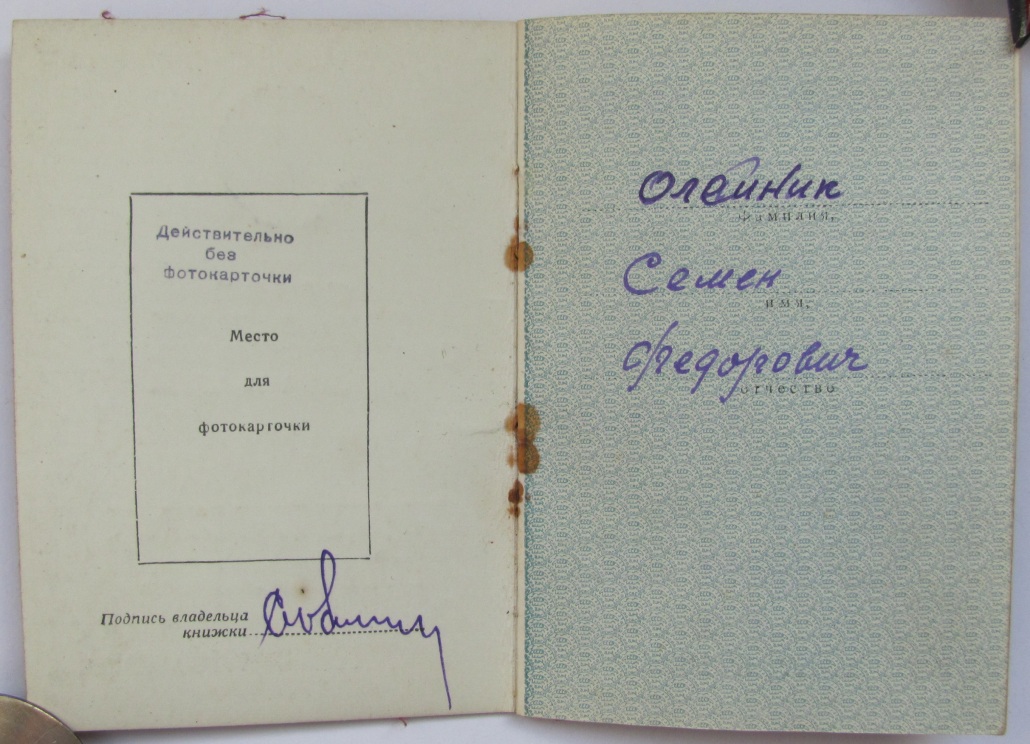 Действительно
без
фотокарточки
Место
для
фотокарточки
Подпись владельца
книжки
Олейник
фамилия,
Семен
имя,
Федорович
отчество